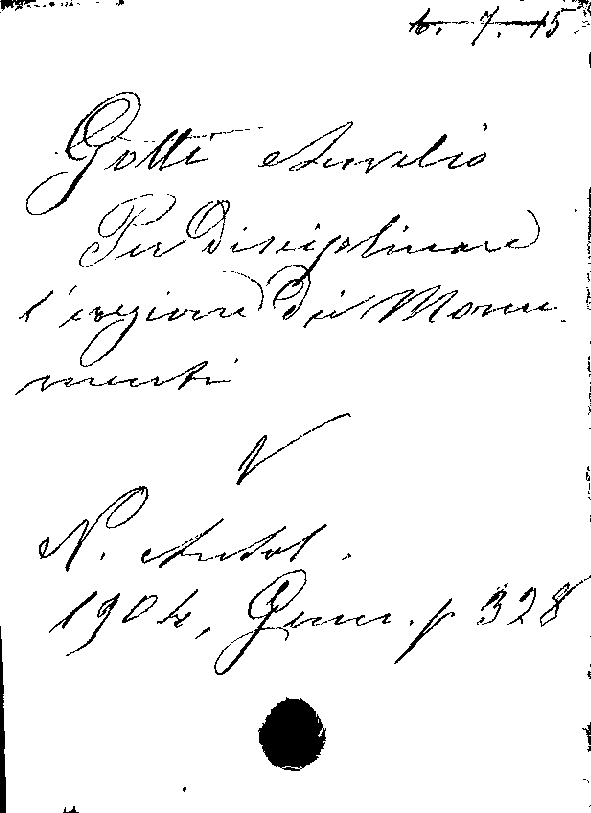 6. 7. 15
Gotti Aurelio
Per disciplinare
l'erezione dei Monu-
menti
V
N. Antol.
1904, Genn. p 328